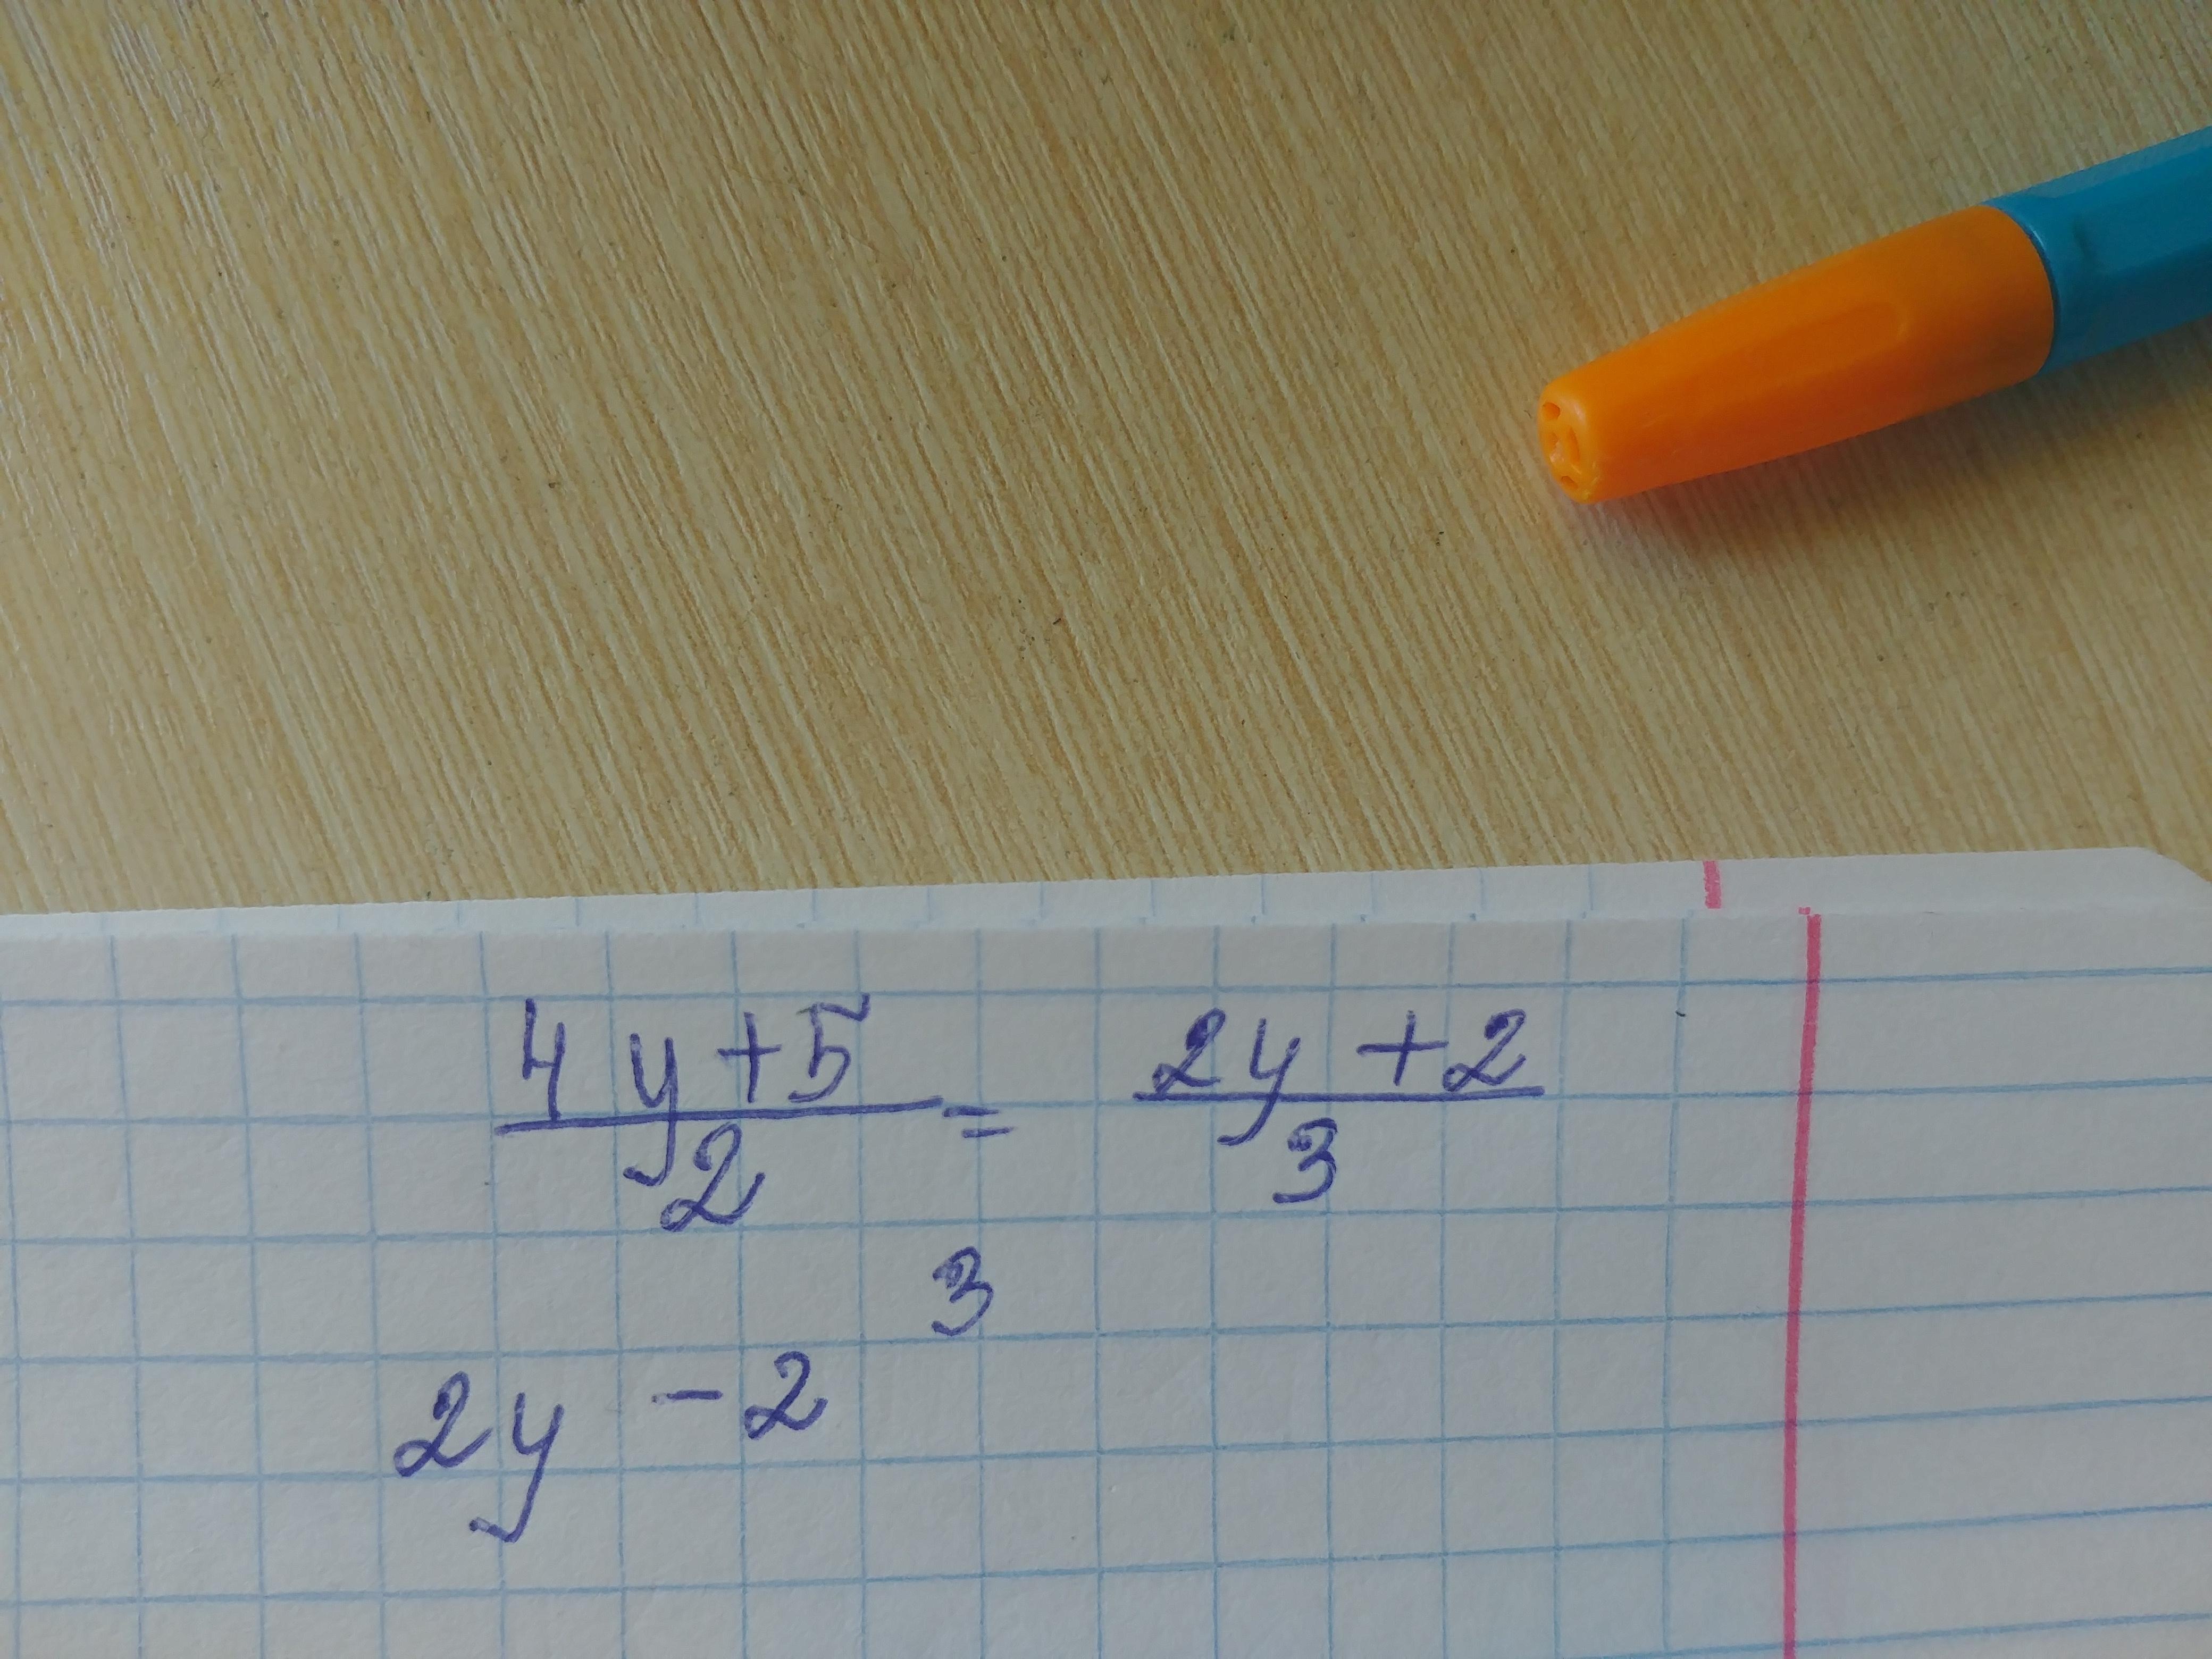 4y+5 = 2y+2
2 3
3
2y -2